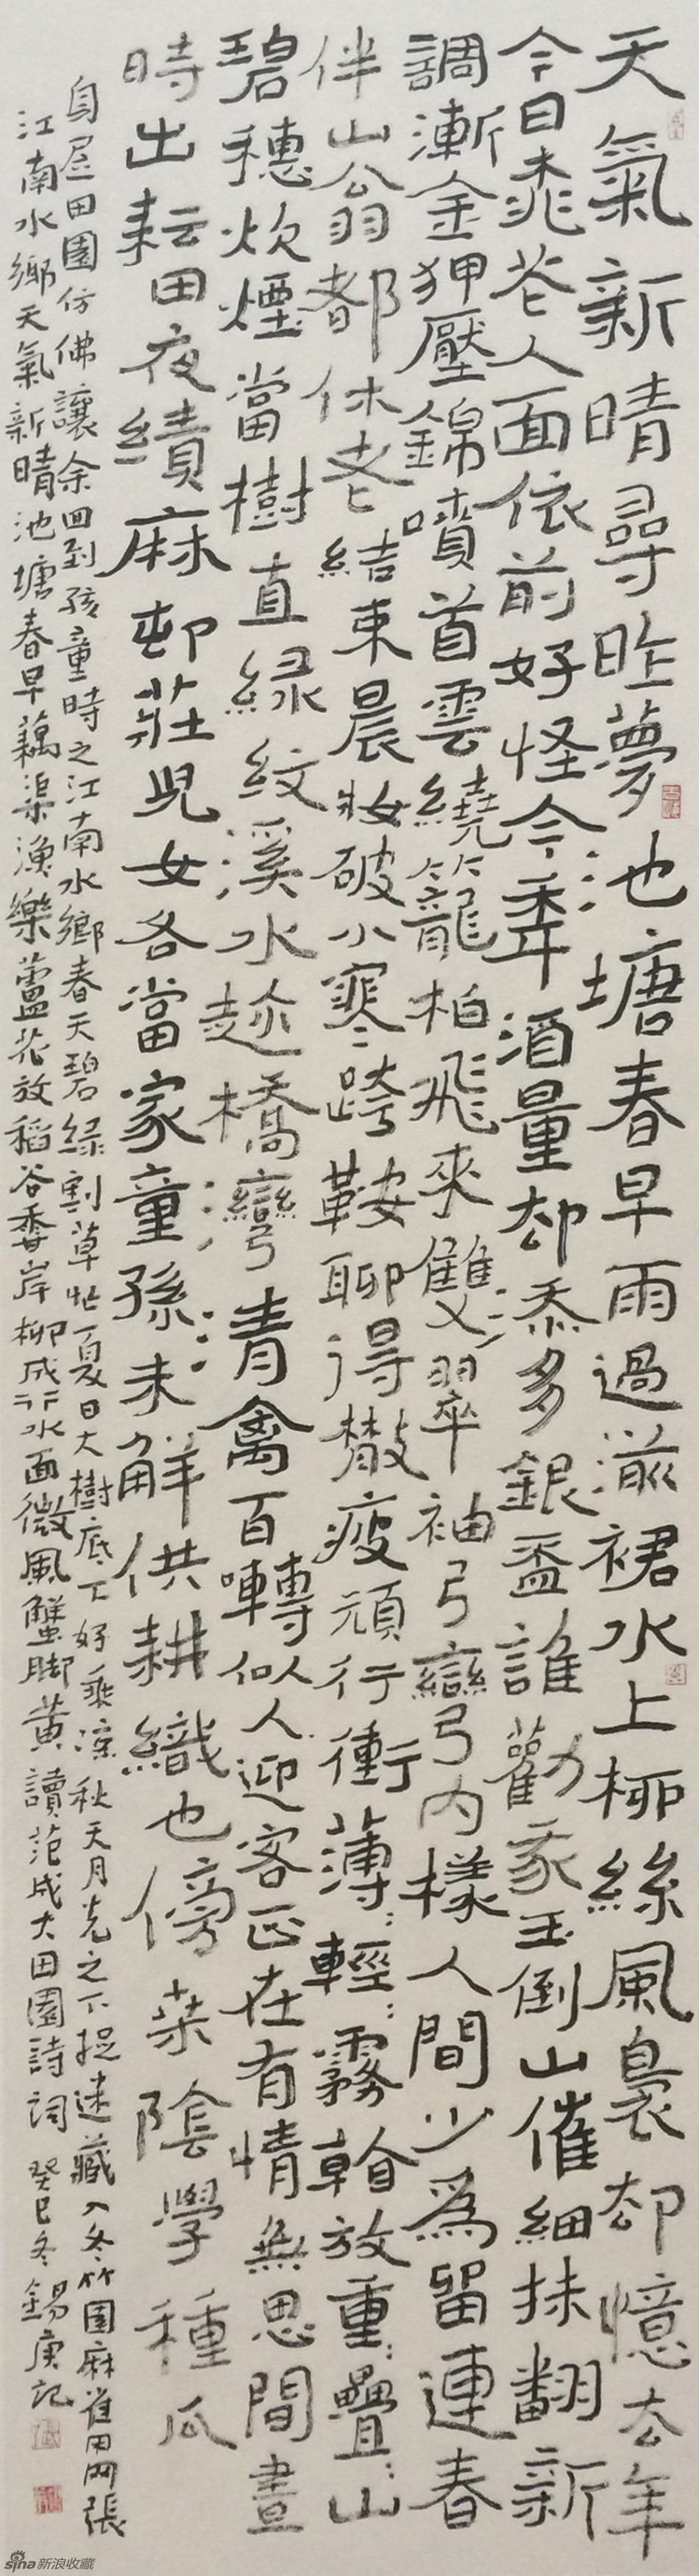 天氣新晴尋昨夢池塘春早雨過湔裙水上柳絲風裊却憶去年
今日桃花人面依前好怪今季酒量却添多銀盃誰勸我玉倒山催細抹翻新
調漸金狎壓錦噴首雲繞籠柏飛來雙翠袖弓彎弓內樣人間少為留連春
伴山翁都休老結束晨妝破小寒跨鞍聊得散疲頑行衝薄薄輕輕霧看放重重疊疊山
碧穗炊煙當樹直綠紋溪水趁橋灣清禽百囀似人迎客正在有情無思間晝
時出耘田夜績麻邨莊兒女各當家童孫未解供耕織也傍桑陰學種瓜
身居田園仿佛讓余回到孩童時之江南水鄉春天碧綠割草忙夏日大樹底下好乘涼秋天月光之下捉迷藏入冬竹園麻雀用网張
江南水鄉天氣新晴池塘春早藕渠漁樂蘆花放稻谷香岸柳成行水面微風蟹脚黄讀范成大田園詩詞癸巳冬錫庚記
sina新浪收藏